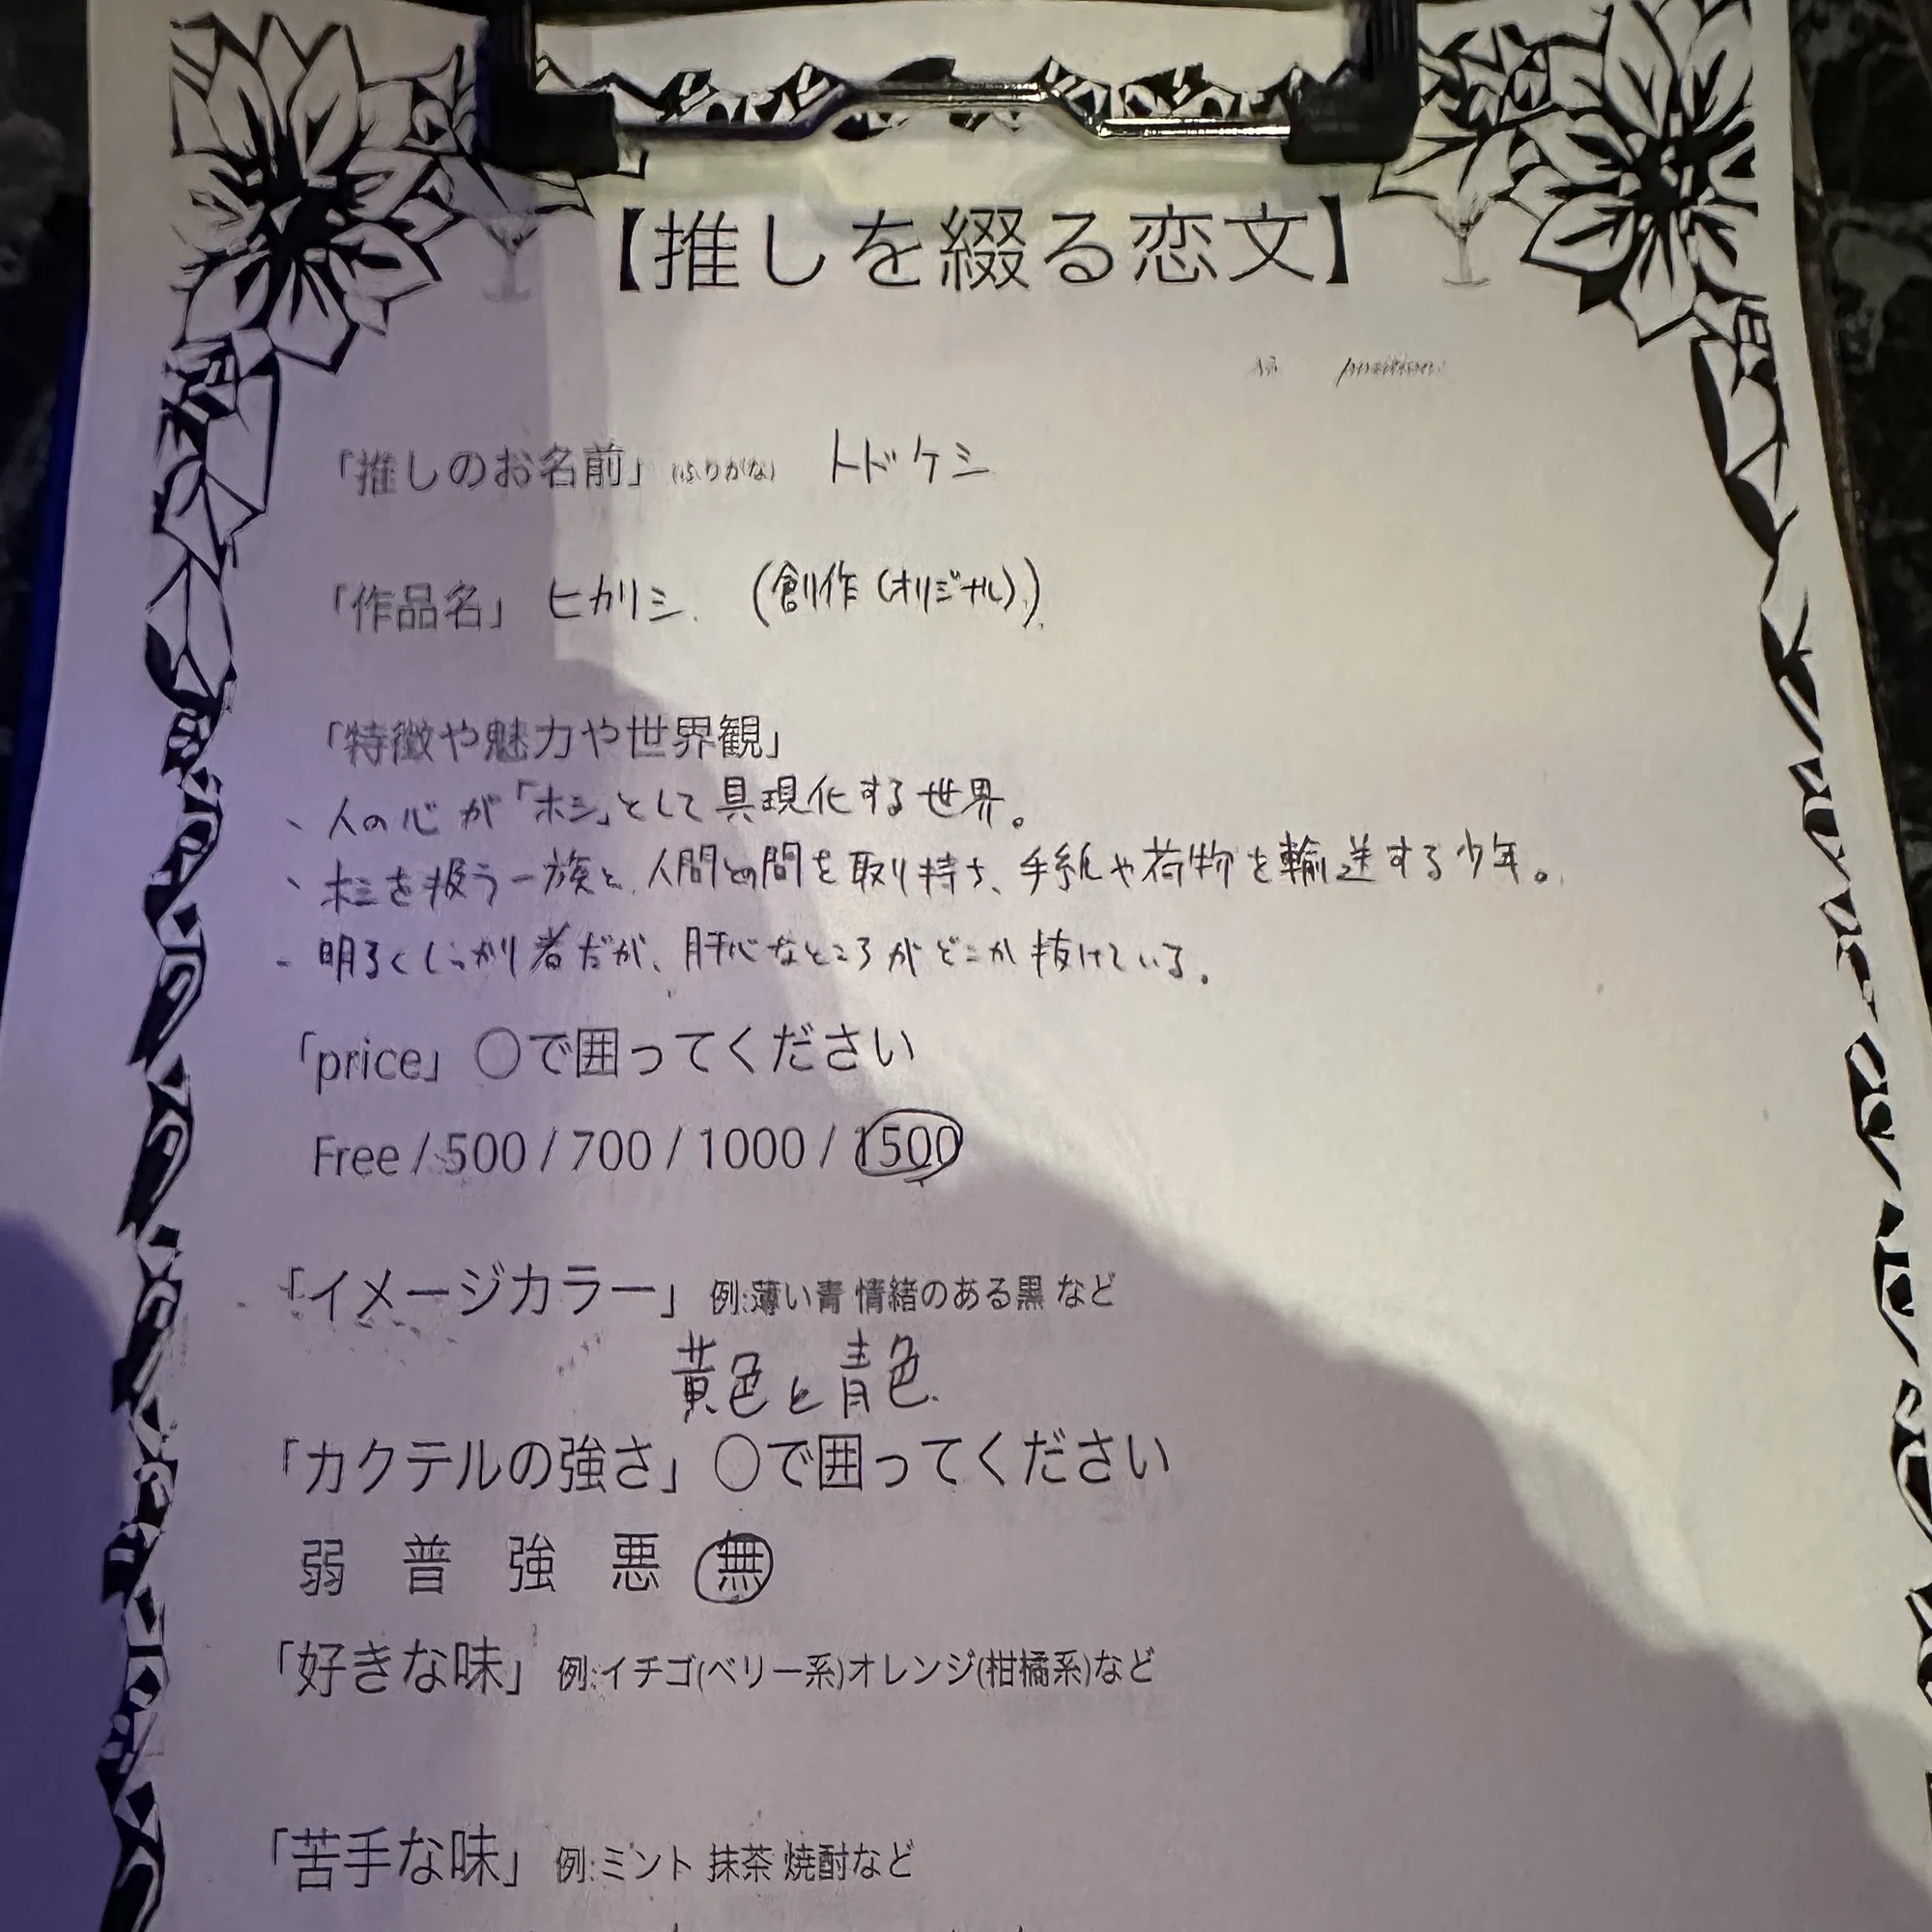 【推しを綴る恋文】
「推しのお名前」(ふりがな) トドケシ
「作品名」 ヒカリシ. (創作(オリジナル)).
「特徴や魅力や世界観」
、人の心が「ホシ」として具現化する世界。
、ホシを扱う一族と、人間との間を取り持ち、手紙や荷物を輸送する少年。
- 明るくしっかり者だが、肝心なところがどこか抜けている。
「price」 〇で囲ってください
Free / 500 / 700 / 1000 / 1500
「イメージカラー」 例:薄い青 情緒のある黒 など
黄色と青色.
「カクテルの強さ」 〇で囲ってください
弱 普 強 悪 無
「好きな味」 例:イチゴ(ベリー系)オレンジ(柑橘系)など
「苦手な味」 例:ミント 抹茶 焼酎など